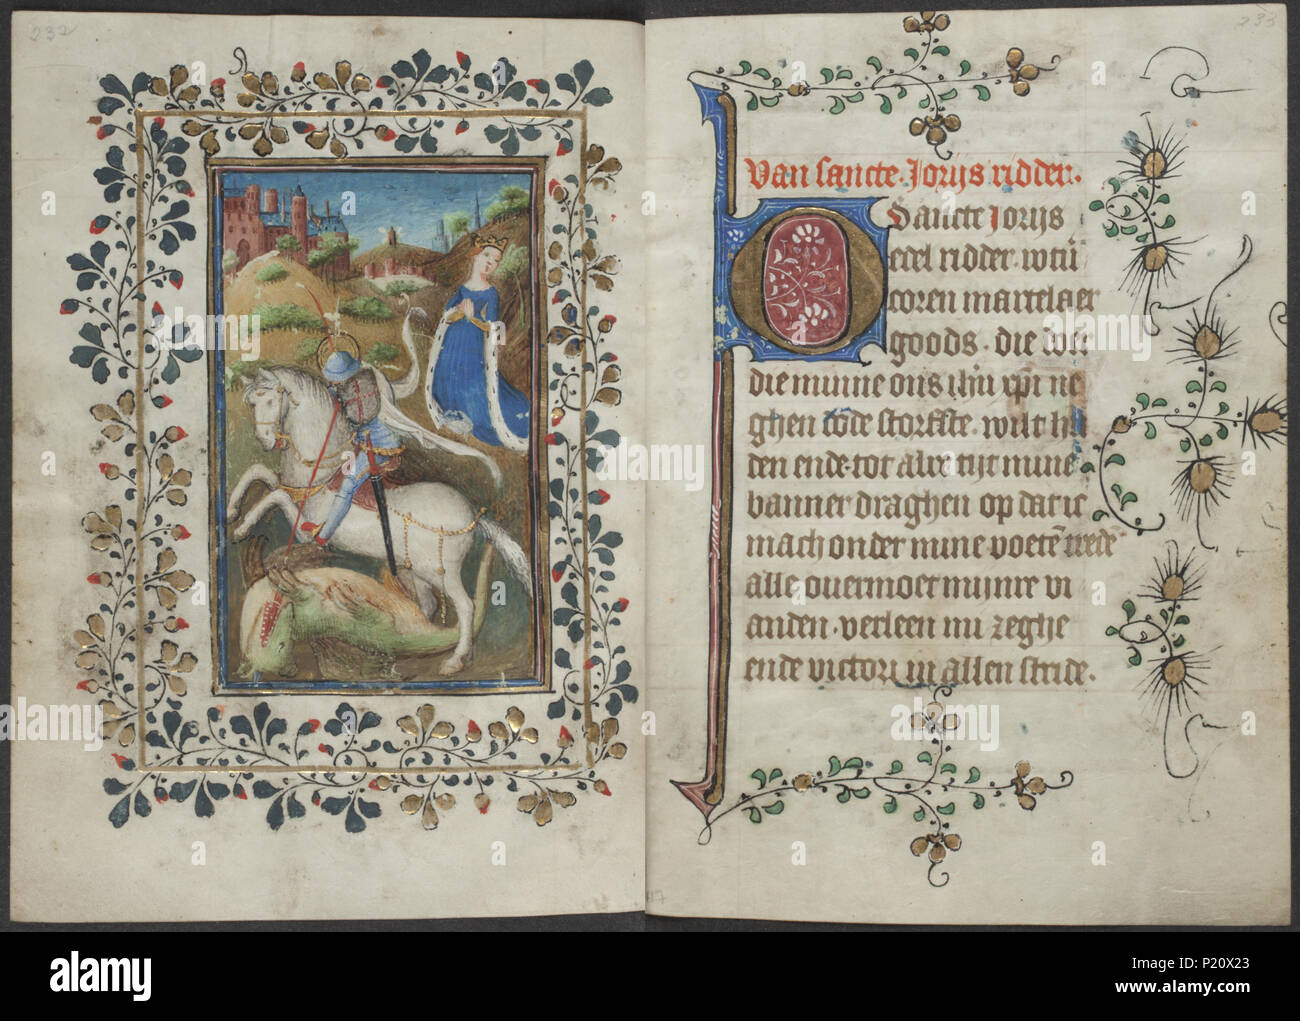 232
233
Van sancte Jorijs ridder.
O Sancte Jorijs
edel ridder
coren martelaer
goods . die
die minne ons ihū xpī ne
ghen storfste . wilt
den ende tot alre tijt mine
banner draghen op dat ic
mach onder mine voetē tredē
alle ouermoet mijnre vi
anden . verleen mi zeghe
ende victori in allen stride .
alamy
Image ID: P20X23
www.alamy.com